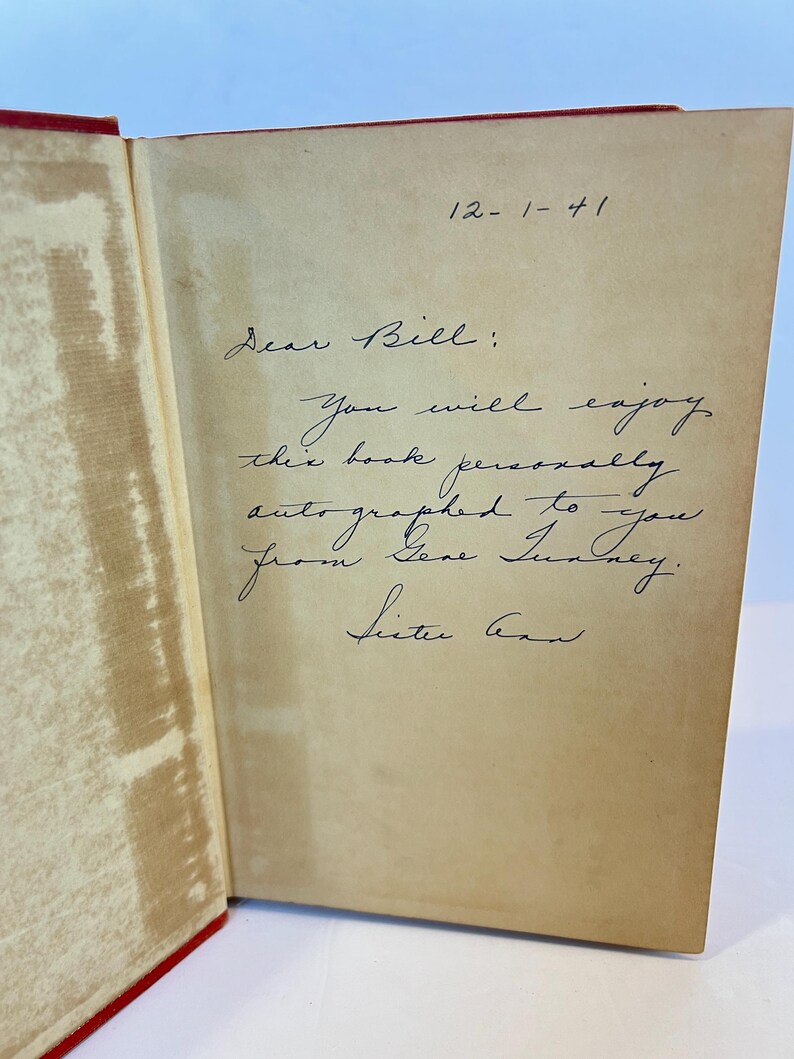 12-1-41
Dear Bill:
You will enjoy
this book personally
autographed to you
from Gene Tunney.
Sister Ann